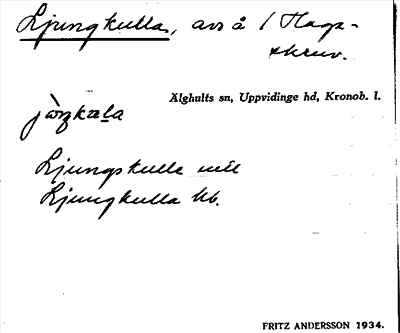 Ljungkulla, avs å / Haga-
skruv.
Älghults sn, Uppvidinge hd, Kronob. l.
Ljungskulle
Ljungkulla kb.
FRITZ ANDERSSON 1934.